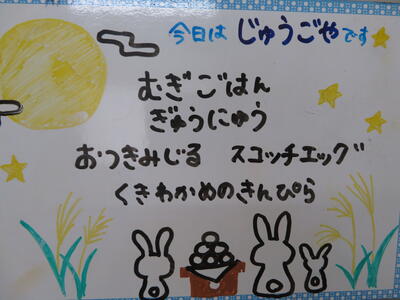 今日は じゅうごや です
むぎごはん
ぎゅうにゅう
おつきみじる スコッチエッグ
くきわかめのきんぴら